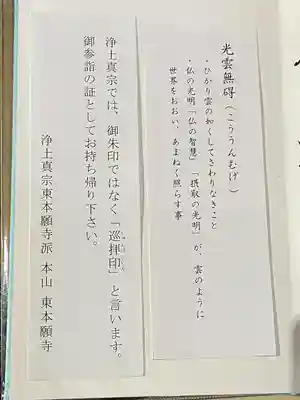 光雲無碍(こううんむげ)
・ひかり雲の如くしてさわりなきこと
・仏の光明「仏の智慧」「摂取の光明」が、雲のように
世界をおおい、あまねく照らす事
浄土真宗では、御朱印ではなく「巡拝印」と言います。
じゅんぱいいん
御参詣の証としてお持ち帰り下さい。
浄土真宗東本願寺派 本山 東本願寺